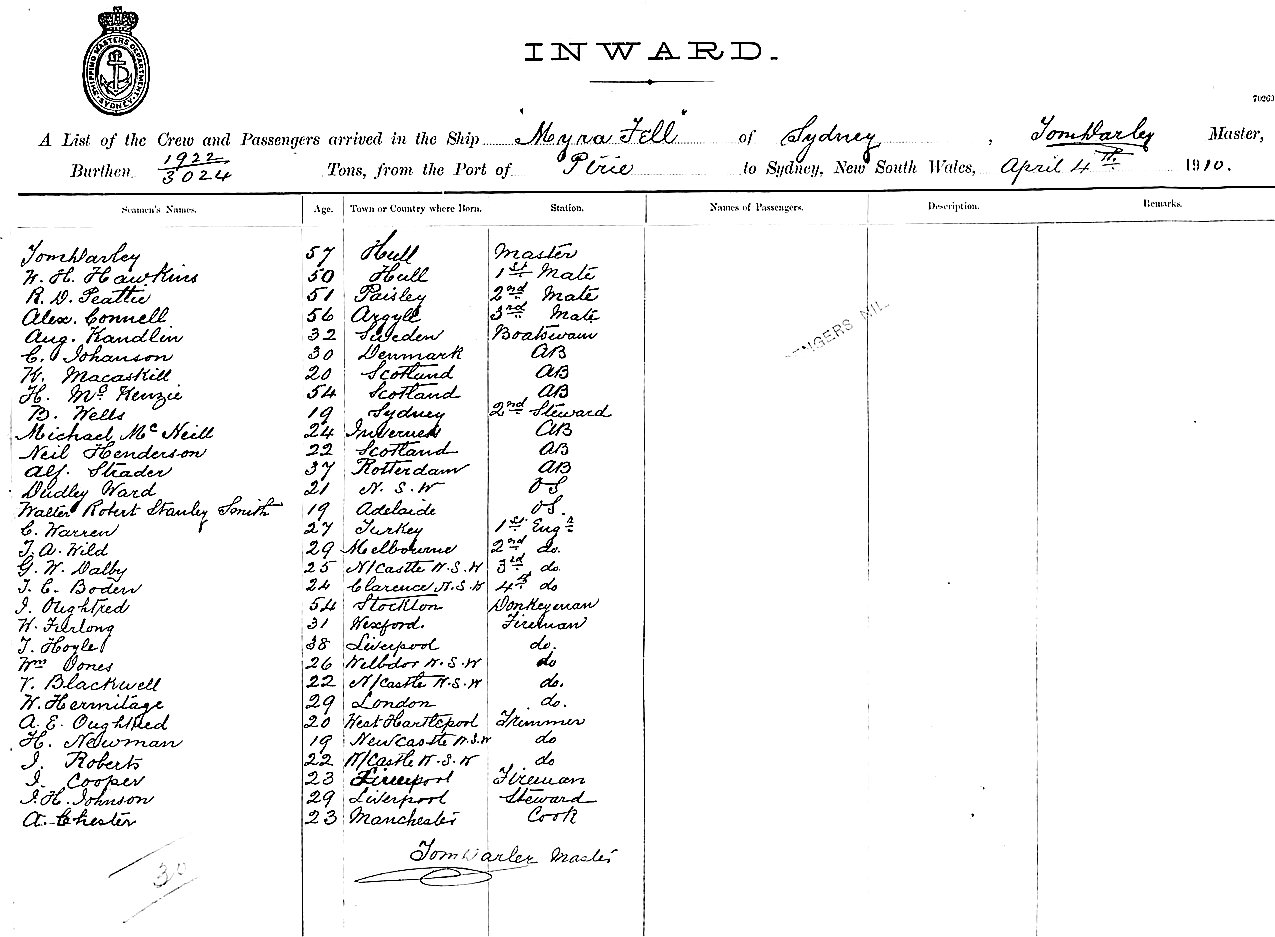 SHIPPING MASTERS DEPARTMENT SYDNEY
INWARD.
70263
A List of the Crew and Passengers arrived in the Ship "Myra Fell" of Sydney, Tom Varley Master,
Burthen 1922/3024 Tons, from the Port of Pirie to Sydney, New South Wales, April 4th 1910.
Seamen's Names. Age. Town or Country where Born. Station. Names of Passengers. Description. Remarks.
Tom Varley 57 Hull Master
W. H. Hawkins 50 Hull 1st Mate
R. D. Peattie 51 Paisley 2nd Mate
Alex. Connell 56 Argyll 3rd Mate
Aug. Kandlin 32 Sweden Boatswain
C. Johanson 30 Denmark AB
K. Macaskill 20 Scotland AB
H. Mc Kenzie 54 Scotland AB
B. Wells 19 Sydney 2nd Steward
Michael Mc Neill 24 Inverness AB
Neil Henderson 22 Scotland AB
Alf. Strader 37 Rotterdam AB
Dudley Ward 21 N. S. W OS
Walter Robert Stanley Smith 19 Adelaide OS.
C. Warren 27 Turkey 1st Engr
T. A. Wild 29 Melbourne 2nd do.
G. W. Dalby 25 N/Castle N.S.W 3rd do
T. C. Boden 24 Clarence N.S.W 4th do
J. Oughtred 54 Stockton Donkeyman
W. Furlong 31 Wexford. Fireman
T. Hoyle 38 Liverpool do.
Wm Jones 26 N.S.W do
V. Blackwell 22 N/Castle N.S.W do.
W. Hermitage 29 London do.
A. E. Oughtred 20 West Hartlepool Trimmer
H. Newman 19 Newcastle N.S.W do
J. Roberts 22 N/Castle N.S.W do
J. Cooper 23 Liverpool Fireman
J. H. Johnson 29 Liverpool Steward
A. Chester 23 Manchester Cook
NGERS NIL
Tom Varley Master
30